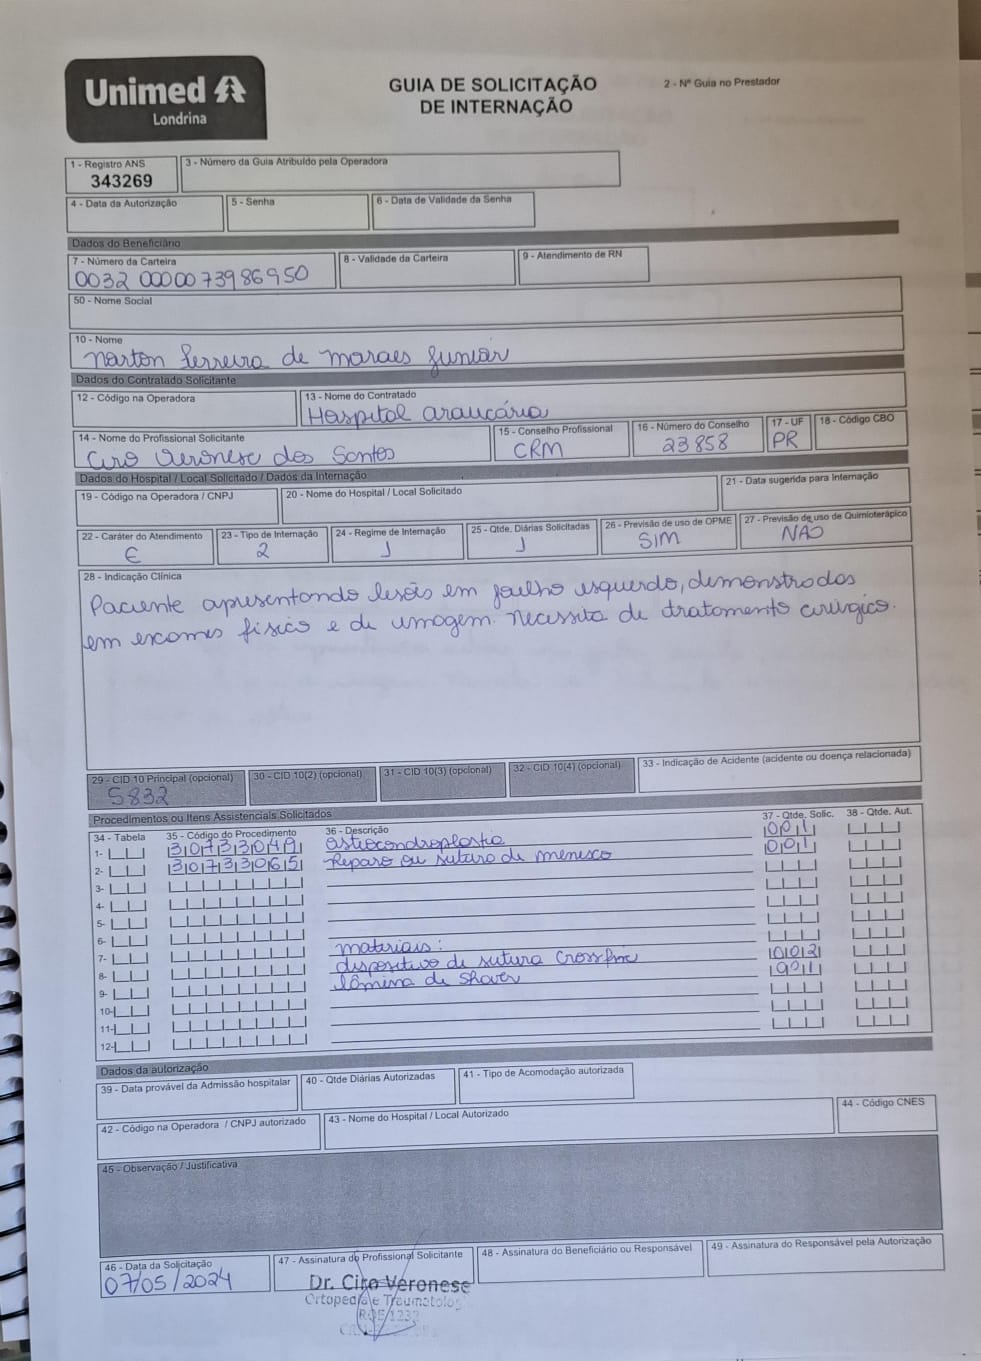 Unimed
Londrina
GUIA DE SOLICITAÇÃO
DE INTERNAÇÃO
2 - Nº Guia no Prestador
1 - Registro ANS
343269
3 - Número da Guia Atribuído pela Operadora
4 - Data da Autorização
5 - Senha
6 - Data de Validade da Senha
Dados do Beneficiário
7 - Número da Carteira
0032 000007398 6950
8 - Validade da Carteira
9 - Atendimento de RN
50 - Nome Social
10 - Nome
Narton Ferreira de moraes Junior
Dados do Contratado Solicitante
12 - Código na Operadora
13 - Nome do Contratado
Hospital araucária
14 - Nome do Profissional Solicitante
Ciro Veronese dos Santos
15 - Conselho Profissional
CRM
16 - Número do Conselho
23858
17 - UF
PR
18 - Código CBO
Dados do Hospital / Local Solicitado / Dados da Internação
19 - Código na Operadora / CNPJ
20 - Nome do Hospital / Local Solicitado
21 - Data sugerida para Internação
22 - Caráter do Atendimento
E
23 - Tipo de Internação
2
24 - Regime de Internação
1
25 - Qtde. Diárias Solicitadas
1
26 - Previsão de uso de OPME
SIM
27 - Previsão de uso de Quimioterápico
NAO
28 - Indicação Clínica
Paciente apresentando lesões em joelho esquerdo, demonstrados
em exames físico e de imagem. Necessita de tratamento cirúrgico.
29 - CID 10 Principal (opcional)
S832
30 - CID 10(2) (opcional)
31 - CID 10(3) (opcional)
32 - CID 10(4) (opcional)
33 - Indicação de Acidente (acidente ou doença relacionada)
Procedimentos ou Itens Assistenciais Solicitados
34 - Tabela
35 - Código do Procedimento
36 - Descrição
37 - Qtde. Solic.
38 - Qtde. Aut.
1- 30733049 osteocondroplastia 001
2- 30733065 Reparo ou sutura de menisco 001
3-
4-
5-
6-
7- materiais:
8- dispositivo de sutura Crossfix 002
9- lâmina de Shaver 001
10-
11-
12-
Dados da autorização
39 - Data provável da Admissão hospitalar
40 - Qtde Diárias Autorizadas
41 - Tipo de Acomodação autorizada
42 - Código na Operadora / CNPJ autorizado
43 - Nome do Hospital / Local Autorizado
44 - Código CNES
45 - Observação / Justificativa
46 - Data da Solicitação
07/05/2024
47 - Assinatura do Profissional Solicitante
48 - Assinatura do Beneficiário ou Responsável
49 - Assinatura do Responsável pela Autorização
Dr. Ciro Veronese
Ortopedia e Traumatolog
RQE 1232